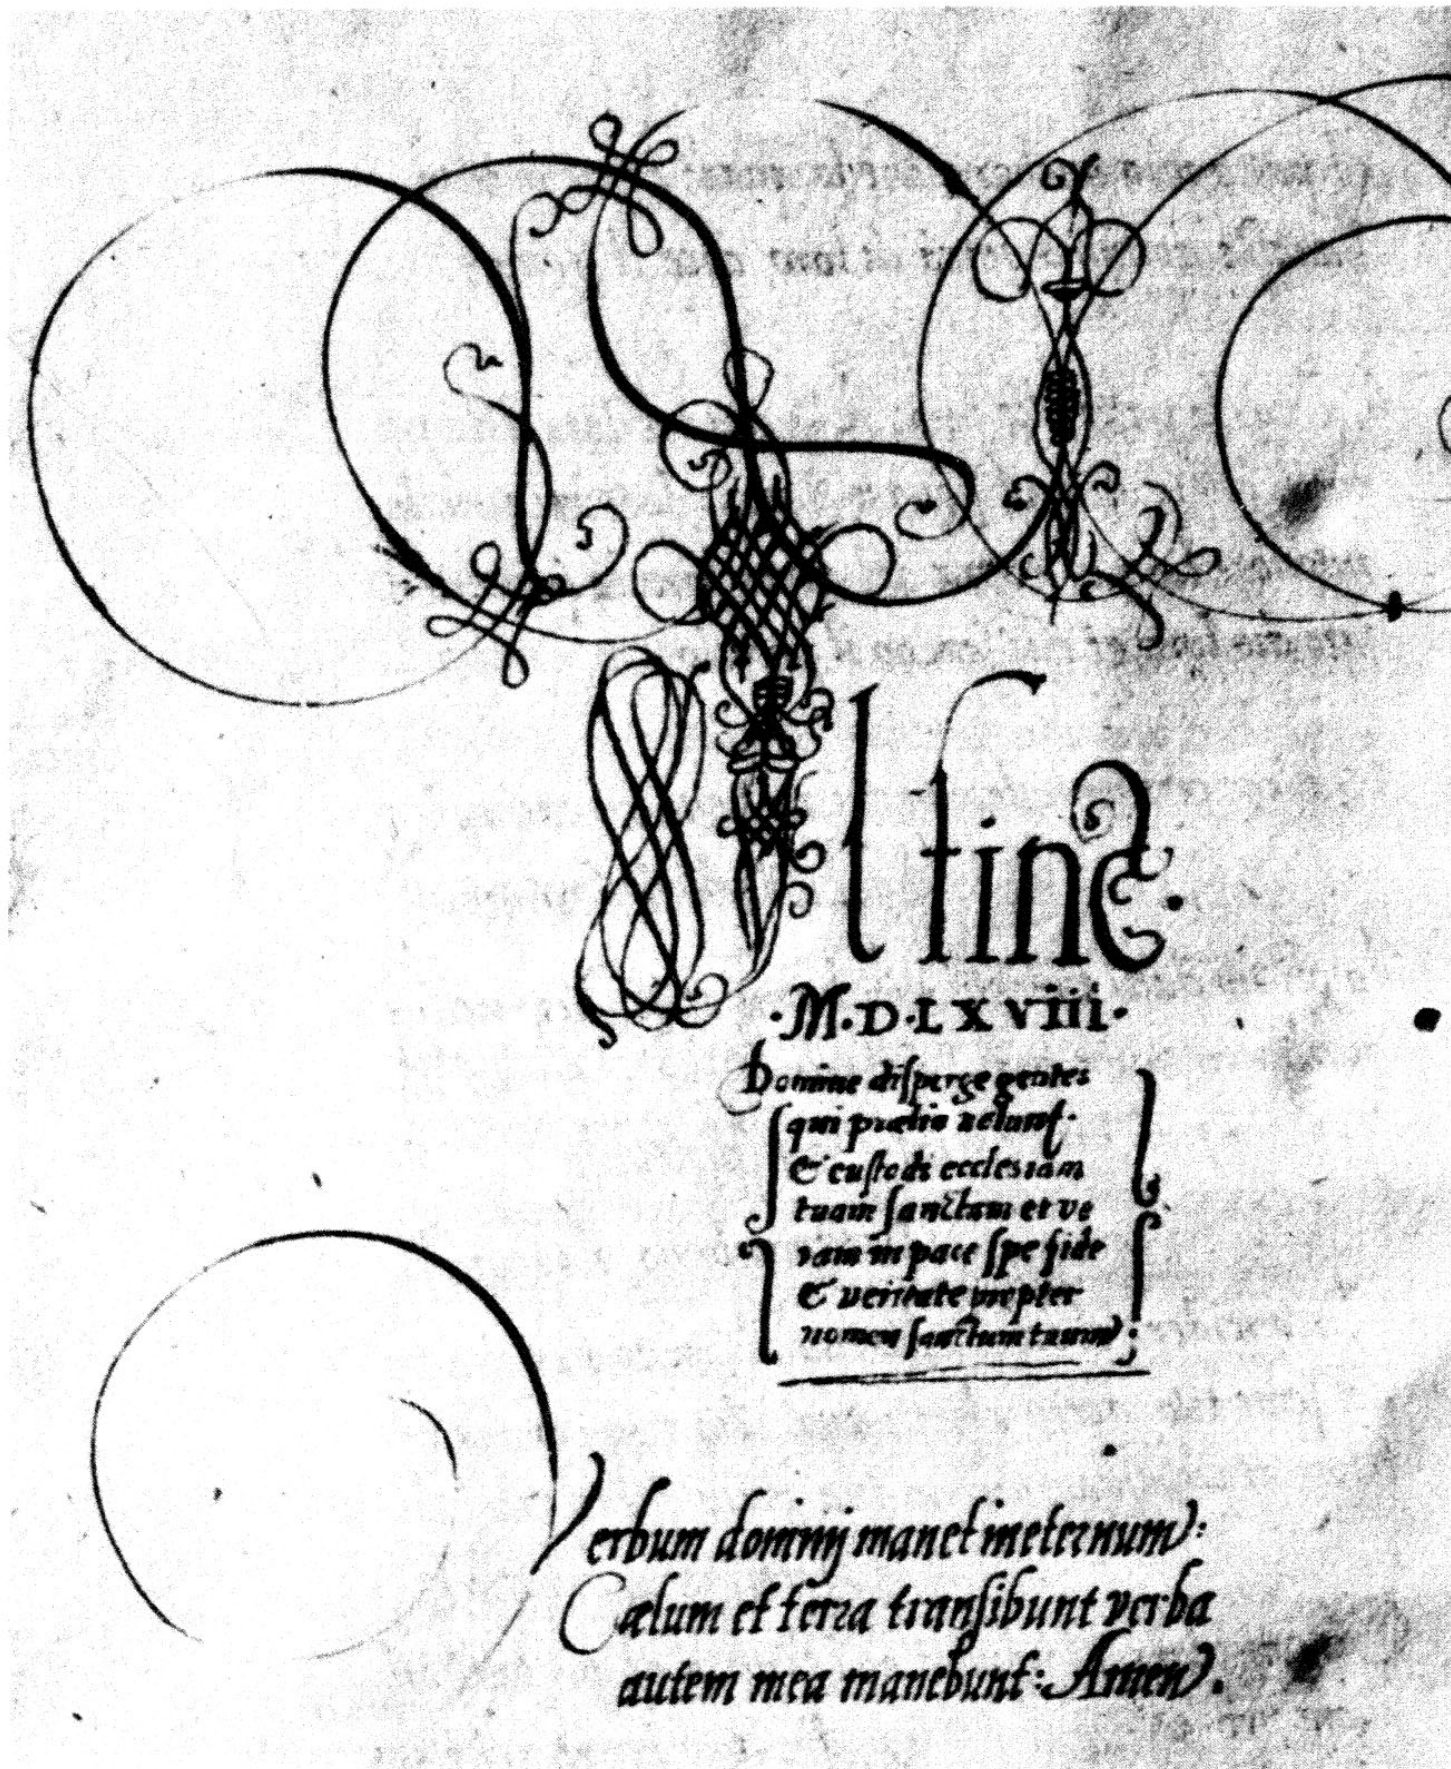 Il fine.
·M·D·LXViii·
Domine disperge gentes
qui prælia uolunt·
& custodi ecclesiam
tuam sanctam et ve
ram in pace spe fide
& veritate propter
nomen sanctum tuum:
Verbum dominj manet ineternum:
Cælum et terra transibunt verba
autem mea manebunt: Amen.